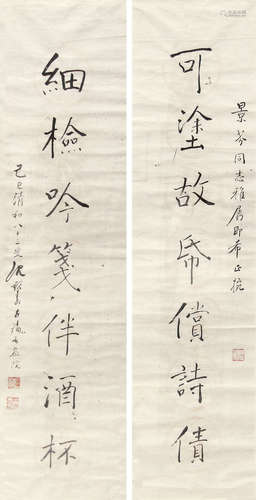 景芬同志雅属即希正捥
可塗故帋償詩債
細檢吟箋伴酒杯
己巳清和八十二叟